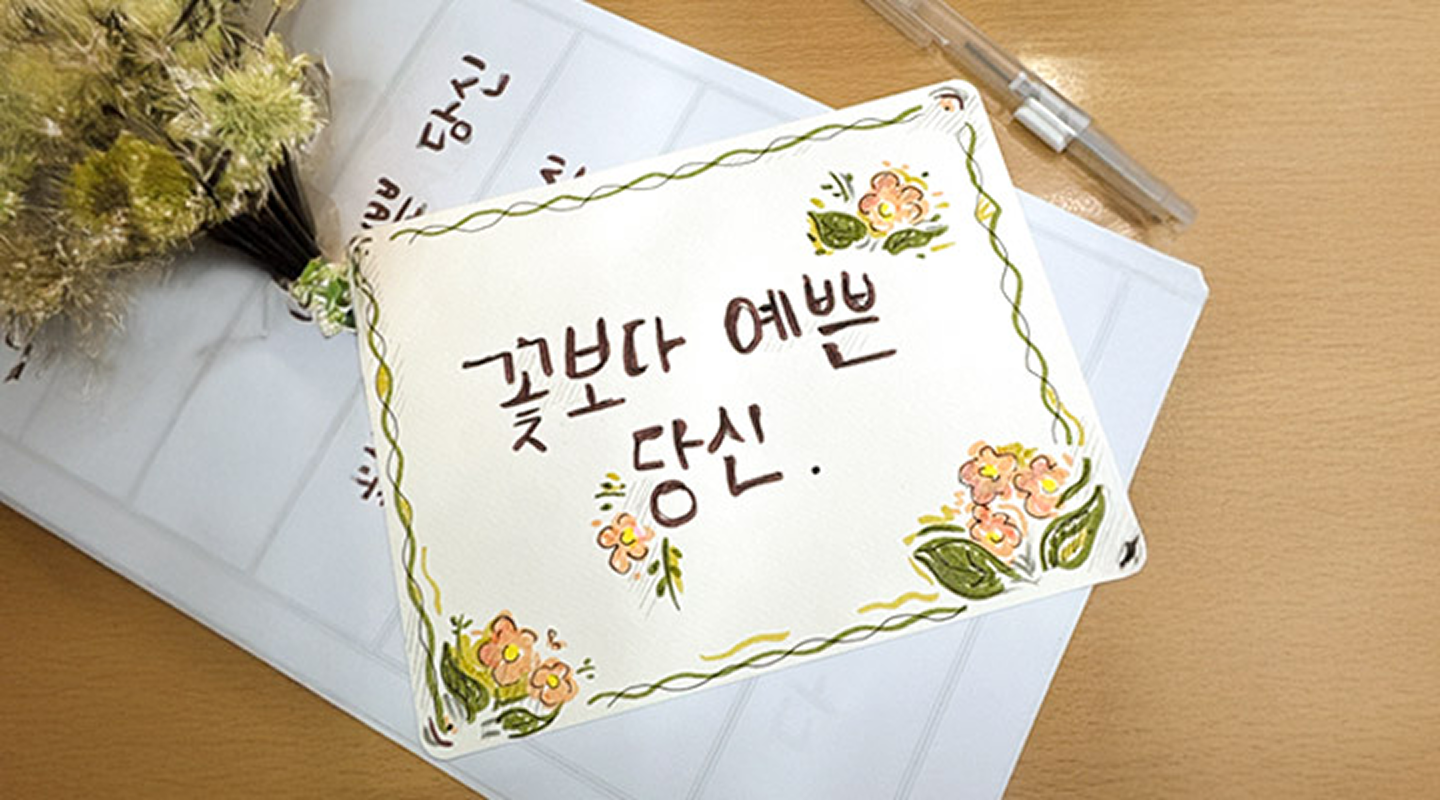 꽃보다 예쁜
당신.
당신